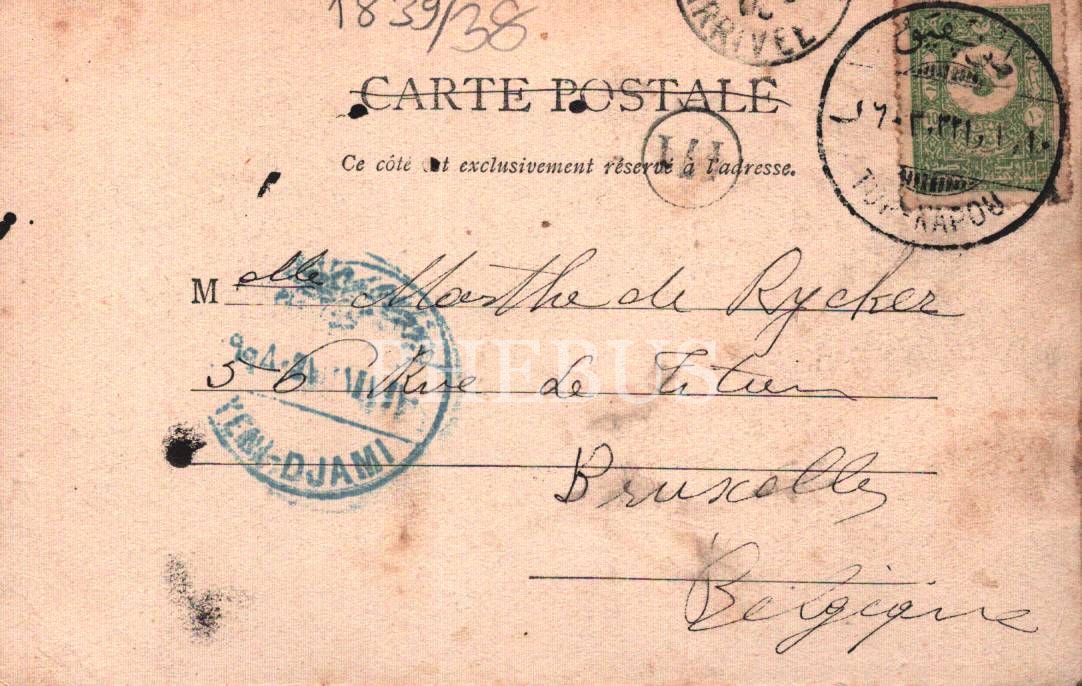 1839/38
ARRIVEE
CARTE POSTALE
TOP-KAPOU
Ce côté est exclusivement réservé à l'adresse.
Melle Marthe de Rycker
PHEBUS
56 Rue de Titien
YENI-DJAMI
Bruxelles
Belgique